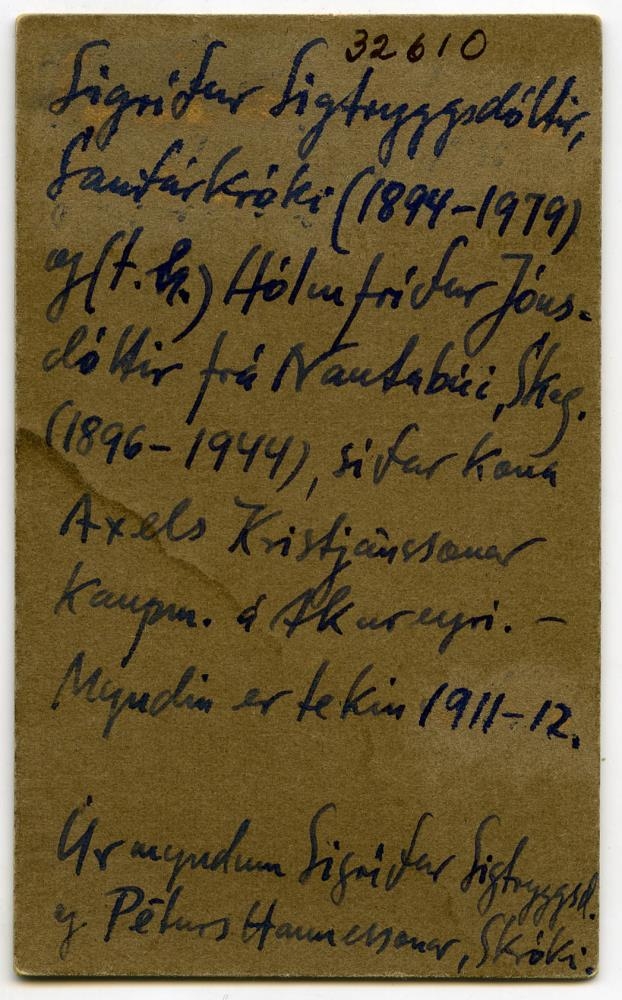 32610
Sigríður Sigtryggsdóttir,
Sauðárkróki (1894-1979)
og (t.h.) Hólmfríður Jóns-
dóttir frá Nautabúi, Skag.
(1896-1944), síðar kona
Axels Kristjánssonar
kaupm. á Akureyri. -
Myndin er tekin 1911-12.
Úr myndum Sigríðar Sigtryggsd.
og Péturs Hannessonar, Skróki.